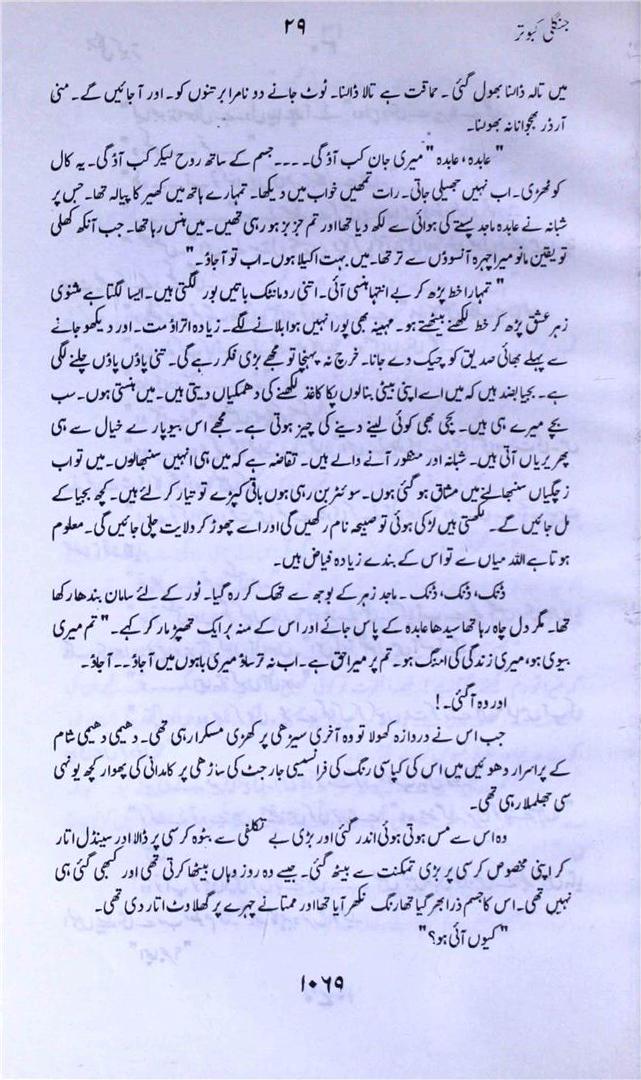 جنگلی کبوتر
۲۹
میں تالہ ڈالنا بھول گئی۔ حماقت ہے تالا ڈالنا۔ ٹوٹ جانے دو نامراد برتنوں کو۔ اور آ جائیں گے۔ منی
آرڈر بھجوانا نہ بھولنا۔
"عابدہ، عابدہ" میری جان کب آؤ گی۔۔۔۔ جسم کے ساتھ روح لیکر کب آؤ گی۔ یہ کال
کوٹھڑی۔ اب نہیں جھیلی جاتی۔ رات تمھیں خواب میں دیکھا۔ تمہارے ہاتھ میں کھیر کا پیالہ تھا۔ جس پر
شبانہ نے عابدہ ماجد پستے کی ہوائی سے لکھ دیا تھا اور تم جزبز ہو رہی تھیں۔ میں ہنس رہا تھا۔ جب آنکھ کھلی
تو یقین مانو میرا چہرہ آنسوؤں سے تر تھا۔ میں بہت اکیلا ہوں۔ اب تو آ جاؤ۔"
"تمہارا خط پڑھ کر بے انتہا ہنسی آئی۔ اتنی رومانٹک باتیں بور لگتی ہیں۔ ایسا لگتا ہے مثنوی
زہر عشق پڑھ کر خط لکھنے بیٹھتے ہو۔ مہینہ بھی پورا نہیں ہوا بلانے لگے۔ زیادہ اتراؤ مت۔ اور دیکھو جانے
سے پہلے بھائی صدیق کو چیک دے جانا۔ خرچ نہ پہنچا تو مجھے بڑی فکر رہے گی۔ تنی پاؤں پاؤں چلنے لگی
ہے۔ بجیا بضد ہیں کہ میں اے اپنی بیٹی بنا لوں پکا کاغذ لکھنے کی دھمکیاں دیتی ہیں۔ میں ہنستی ہوں۔ سب
بچے میرے ہی ہیں۔ بچی بھی کوئی لینے دینے کی چیز ہوتی ہے۔ مجھے اس بیوپار کے خیال سے ہی
پھریریاں آتی ہیں۔ شبانہ اور منظور آنے والے ہیں۔ تقاضہ ہے کہ میں ہی انہیں سنبھالوں۔ میں تو اب
زچگیاں سنبھالنے میں مشاق ہو گئی ہوں۔ سوئٹر بن رہی ہوں باقی کپڑے تو تیار کر لئے ہیں۔ کچھ بجیا کے
مل جائیں گے۔ لکھتی ہیں لڑکی ہوئی تو صبیحہ نام رکھیں گی اور اے چھوڑ کر ولایت چلی جائیں گی۔ معلوم
ہوتا ہے اللہ میاں سے تو اس کے بندے زیادہ فیاض ہیں۔
ڈنک، ڈنک، ڈنک۔ ماجد زہر کے بوجھ سے تھک کر رہ گیا۔ ٹور کے لئے سامان بندھا رکھا
تھا۔ مگر دل چاہ رہا تھا سیدھا عابدہ کے پاس جائے اور اس کے منہ پر ایک تھپڑ مار کر کہے۔ "تم میری
بیوی ہو، میری زندگی کی امنگ ہو۔ تم پر میرا حق ہے۔ اب نہ ترساؤ میری باہوں میں آ جاؤ۔۔ آ جاؤ۔
اور وہ آ گئی۔!
جب اس نے دروازہ کھولا تو وہ آخری سیڑھی پر کھڑی مسکرا رہی تھی۔ دھیمی دھیمی شام
کے پراسرار دھوئیں میں اس کی کپاسی رنگ کی فرانسیسی جارجٹ کی ساڑھی پر کامدانی کی پھوار کچھ یونہی
سی جھلملا رہی تھی۔
وہ اس سے مس ہوتی ہوئی اندر گئی اور بڑی بے تکلفی سے بٹوہ کرسی پر ڈالا اور سینڈل اتار
کر اپنی مخصوص کرسی پر بڑی تمکنت سے بیٹھ گئی۔ جیسے وہ روز وہاں بیٹھا کرتی تھی اور کبھی گئی ہی
نہیں تھی۔ اس کا جسم ذرا بھر گیا تھا رنگ نکھر آیا تھا اور ممتا نے چہرے پر گھلاوٹ اتار دی تھی۔
"کیوں آئی ہو؟"
۱۰۶۹